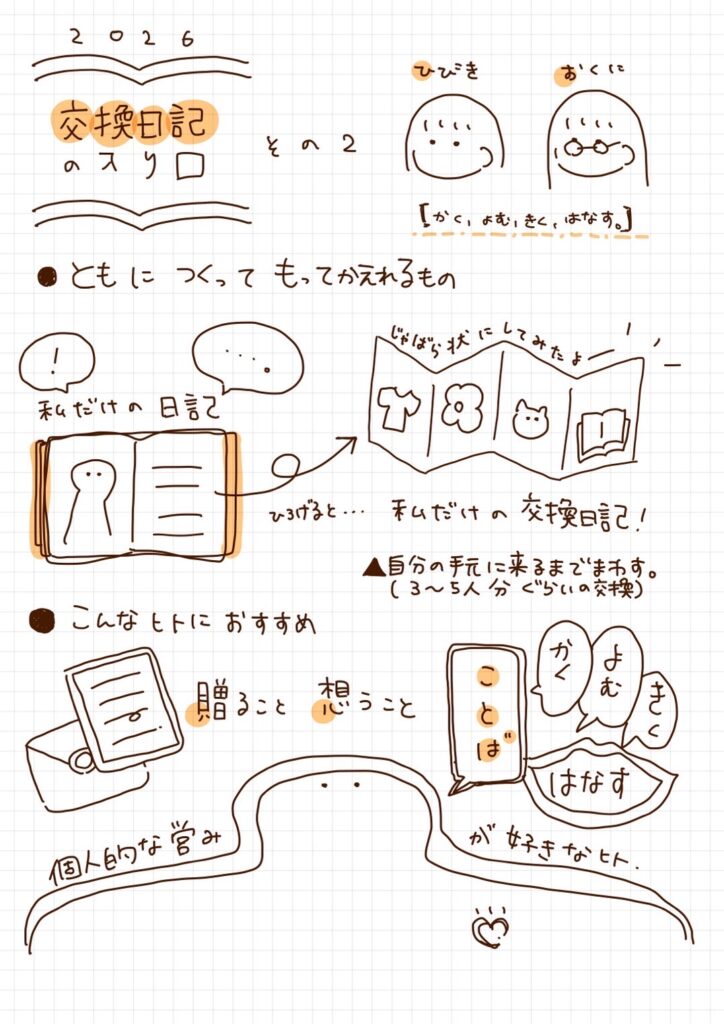 2026
交換日記
の入り口
その2
ひびき
おくに
[かく,よむ,きく,はなす。]
● ともに つくって もってかえれるもの
!
....。
私だけの 日記
じゃばら状にしてみたよ
ひろげると…
私だけの 交換日記!
▲自分の手元に来るまでまわす。
(3〜5人分ぐらいの交換)
● こんなヒトに おすすめ
贈ること 想うこと
ことば
かく
よむ
きく
はなす
個人的な営み
が好きなヒト.